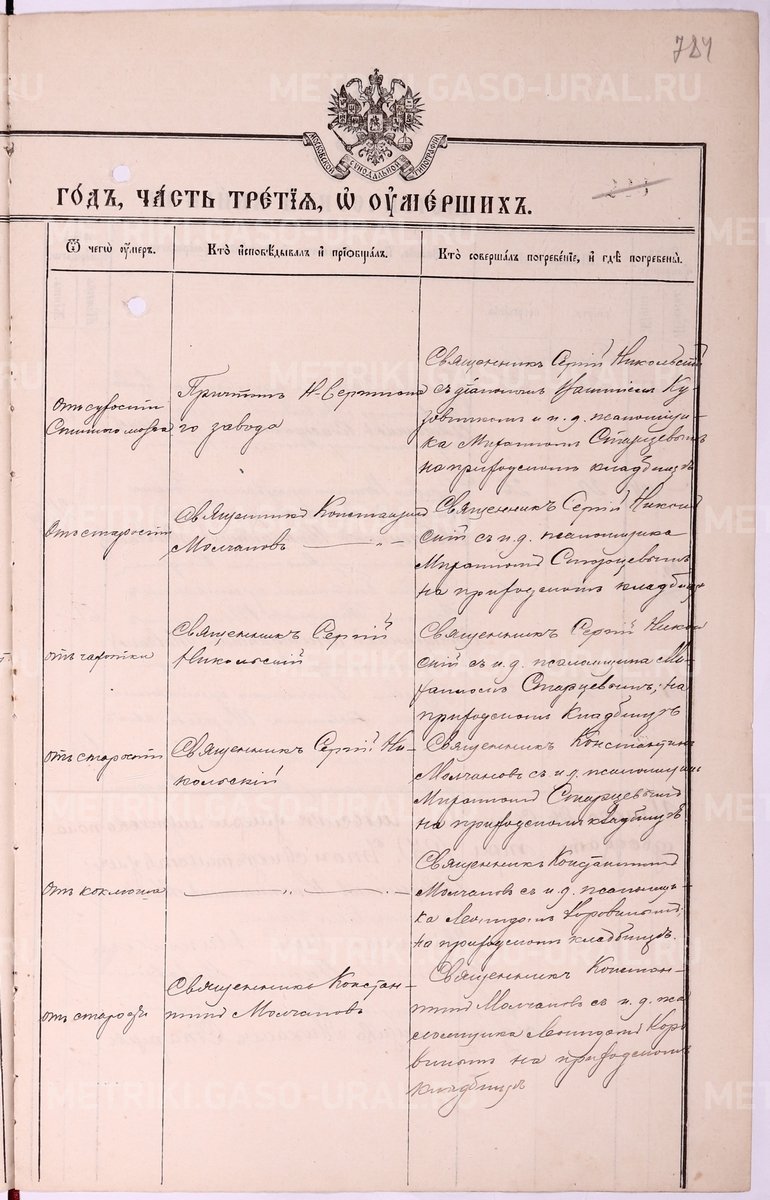 784
METRIKI.GASO-URAL.RU
МОСКОВСКОЙ СѴНОДАЛЬНОЙ ТИПОГРАФІИ
ГОДЪ, ЧАСТЬ ТРЕТІЯ, Ѡ ОУМЕРШИХЪ.
Ѿ чегѡ оумеръ.
Кто исповѣдывалъ и пріобщалъ.
Кто совершалъ погребеніе, и гдѣ погребены.
Отъ
Спиннаго мозга
Причтомъ Н-Сергинска
го завода
Священникъ Сергій Никольскій
съ діакономъ
и и. д. псаломщи-
ка Старцевымъ
на приходскомъ кладбищѣ
Отъ старости
Священникъ Константинъ
Молчановъ
Священникъ Сергій Николь
скій съ и. д. псаломщика
Старцевымъ
на приходскомъ кладбищѣ
отъ чахотки
Священникъ Сергій
Никольскій
Священникъ Сергій Николь
скій съ и. д. псаломщика
Старцевымъ, на
приходскомъ кладбищѣ
отъ старости
Священникъ Сергій Ни-
кольскій
Священникъ Константинъ
Молчановъ съ и. д. псаломщика
Старцевымъ
на приходскомъ кладбищѣ
отъ коклюша
Священникъ Константинъ
Молчановъ съ и. д. псаломщи-
ка Леонидомъ Коровинымъ,
на приходскомъ кладбищѣ.
отъ старости
Священникъ Констан-
тинъ Молчановъ
Священникъ Констан-
тинъ Молчановъ съ и. д. пса
ломщика Леонидомъ Коро
винымъ на приходскомъ
кладбищѣ